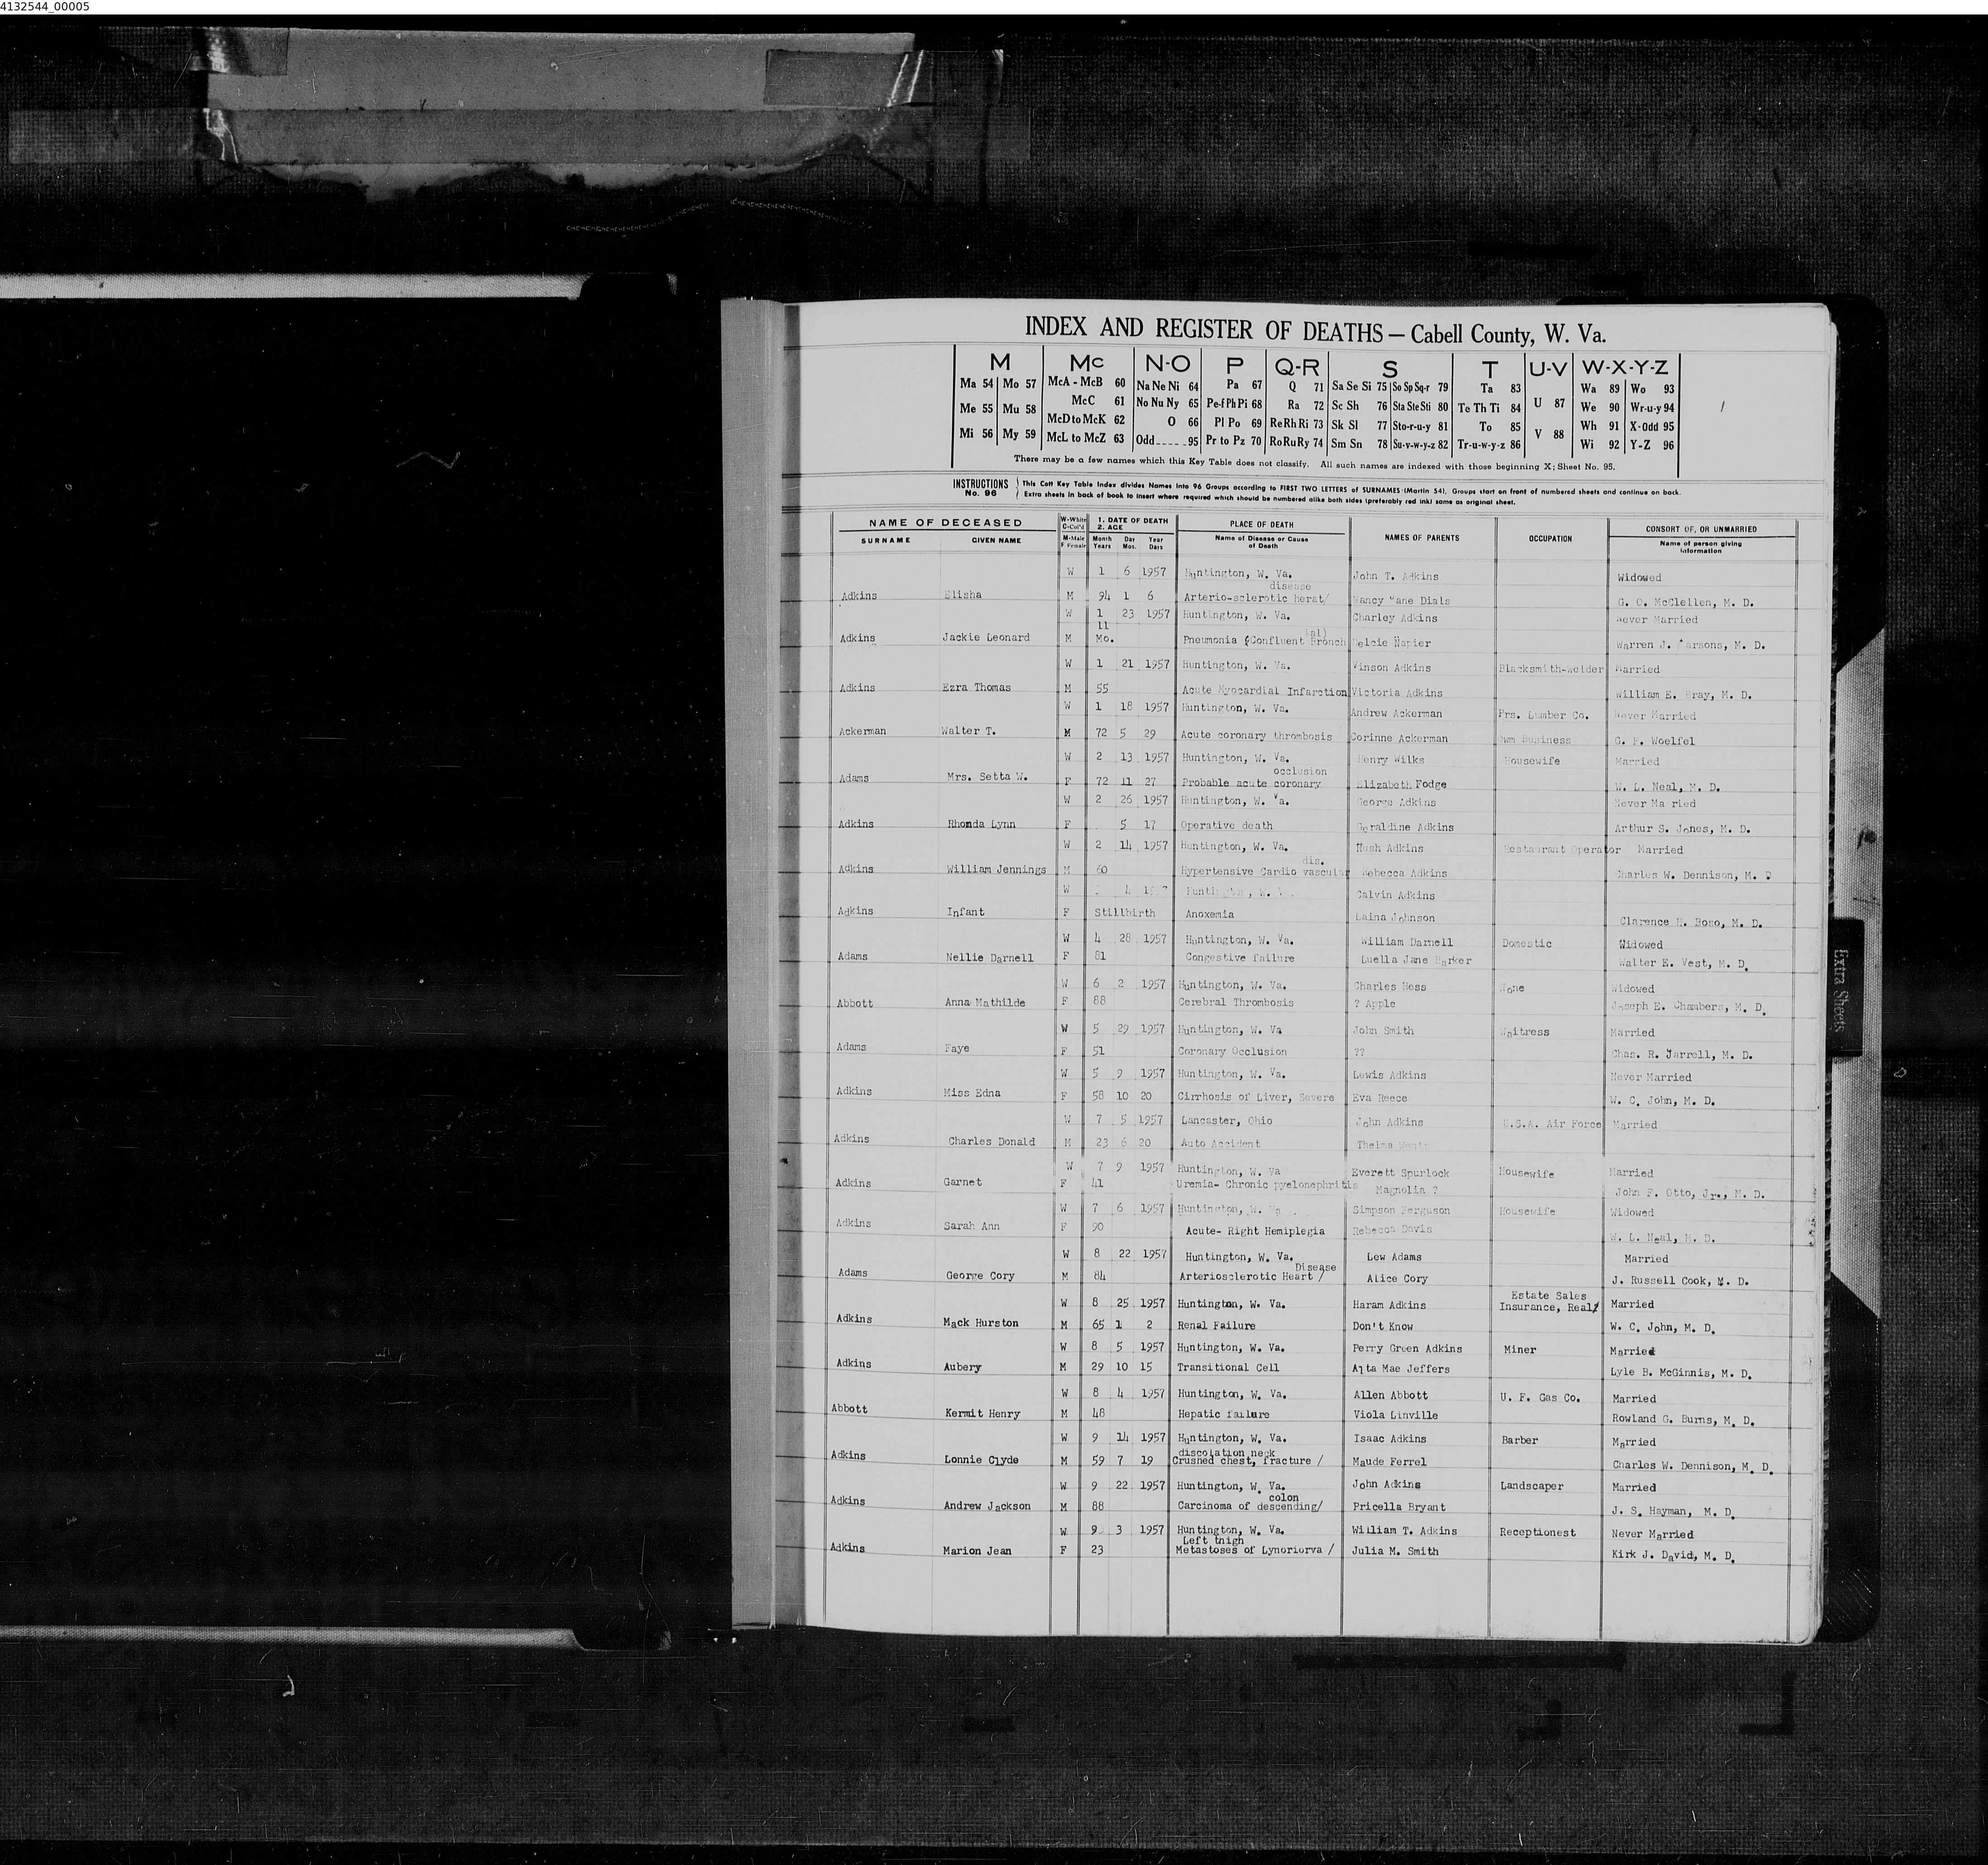 4132544_00005
INDEX AND REGISTER OF DEATHS — Cabell County, W. Va.
M Mc N-O P Q-R S T U-V W-X-Y-Z
Ma 54 Mo 57 McA - McB 60 Na Ne Ni 64 Pa 67 Q 71 Sa Se Si 75 So Sp Sq-r 79 Ta 83 Wa 89 Wo 93
Me 55 Mu 58 McC 61 No Nu Ny 65 Pe-f Ph Pi 68 Ra 72 Sc Sh 76 Sta Ste Sti 80 Te Th Ti 84 U 87 We 90 Wr-u-y 94
Mi 56 My 59 McD to McK 62 O 66 Pl Po 69 Re Rh Ri 73 Sk Sl 77 Sto-r-u-y 81 To 85 V 88 Wh 91 X-Odd 95
McL to McZ 63 Odd 95 Pr to Pz 70 Ro Ru Ry 74 Sm Sn 78 Su-v-w-y-z 82 Tr-u-w-y-z 86 Wi 92 Y-Z 96
There may be a few names which this Key Table does not classify. All such names are indexed with those beginning X; Sheet No. 95.
INSTRUCTIONS No. 96
This Cott Key Table Index divides Names into 96 Groups according to FIRST TWO LETTERS of SURNAMES (Martin 54), Groups start on front of numbered sheets and continue on back.
Extra sheets in back of book to insert where required which should be numbered alike both sides (preferably red ink) same as original sheet.
NAME OF DECEASED W-White C-Col'd 1. DATE OF DEATH 2. AGE PLACE OF DEATH NAMES OF PARENTS OCCUPATION CONSORT OF, OR UNMARRIED
SURNAME GIVEN NAME M-Male F Female Month Years Day Mos. Year Days Name of Disease or Cause of Death Name of person giving information
W 1 6 1957 Huntington, W. Va. John T. Adkins Widowed
disease
Adkins Elisha M 94 1 6 Arterio-sclerotic herat/ Nancy Dials G. O. McClellen, M. D.
W 1 23 1957 Huntington, W. Va. Charley Adkins Never Married
11 ial)
Adkins Jackie Leonard M Mo. Pneumonia (Confluent Bronch Delcie Napier Warren J. Parsons, M. D.
W 1 21 1957 Huntington, W. Va. Vinson Adkins Blacksmith-welder Married
Adkins Ezra Thomas M 55 Acute Myocardial Infarction Victoria Adkins William E. Bray, M. D.
W 1 18 1957 Huntington, W. Va. Andrew Ackerman Prs. Lumber Co. Never Married
Ackerman Walter T. M 72 5 29 Acute coronary thrombosis Corinne Ackerman Own Business G. F. Woelfel
W 2 13 1957 Huntington, W. Va. Henry Wilks Housewife Married
occlusion
Adams Mrs. Setta W. F 72 11 27 Probable acute coronary Elizabeth Fodge W. L. Neal, M. D.
W 2 26 1957 Huntington, W. Va. George Adkins Never Ma ried
Adkins Rhonda Lynn F 5 17 Operative death Geraldine Adkins Arthur S. Jones, M. D.
W 2 14 1957 Huntington, W. Va. Hush Adkins Restaurant Operator Married
dis.
Adkins William Jennings M 60 Hypertensive Cardio vascular Rebecca Adkins Charles W. Dennison, M. D
W 4 Calvin Adkins
Adkins Infant F Stillbirth Anoxemia Laina Johnson Clarence H. Boso, M. D.
W 4 28 1957 Huntington, W. Va. William Darnell Domestic Widowed
Adams Nellie Darnell F 81 Congestive failure Luella Jane Barker Walter E. Vest, M. D.
W 6 2 1957 Huntington, W. Va. Charles Hess None Widowed
Abbott Anna Mathilde F 88 Cerebral Thrombosis ? Apple Joseph E. Chambers, M. D.
W 5 29 1957 Huntington, W. Va John Smith Waitress Married
Adams Faye F 51 Coronary Occlusion ?? Chas. R. Jarrell, M. D.
W 5 9 1957 Huntington, W. Va. Lewis Adkins Never Married
Adkins Miss Edna F 58 10 20 Cirrhosis of Liver, Severe Eva Reece W. C. John, M. D.
W 7 5 1957 Lancaster, Ohio John Adkins U.S.A. Air Force Married
Adkins Charles Donald M 23 6 20 Auto Accident Thelma
W 7 9 1957 Huntington, W. Va Everett Spurlock Housewife Married
Adkins Garnet F 41 Uremia- Chronic pyelonephritis Magnolia ? John F. Otto, Jr., M. D.
W 7 6 1957 Huntington, W. Va. Simpson Ferguson Housewife Widowed
Adkins Sarah Ann F 90 Acute- Right Hemiplegia Rebecca Davis W. L. Neal, M. D.
W 8 22 1957 Huntington, W. Va. Lew Adams Married
Disease
Adams George Cory M 84 Arteriosclerotic Heart / Alice Cory J. Russell Cook, M. D.
Estate Sales
W 8 25 1957 Huntington, W. Va. Haram Adkins Insurance, Real/ Married
Adkins Mack Hurston M 65 1 2 Renal Failure Don't Know W. C. John, M. D.
W 8 5 1957 Huntington, W. Va. Perry Green Adkins Miner Married
Adkins Aubery M 29 10 15 Transitional Cell Alta Mae Jeffers Lyle B. McGinnis, M. D.
W 8 4 1957 Huntington, W. Va. Allen Abbott U. F. Gas Co. Married
Abbott Kermit Henry M 48 Hepatic failure Viola Linville Rowland G. Burns, M. D.
W 9 14 1957 Huntington, W. Va. Isaac Adkins Barber Married
discolation neck
Adkins Lonnie Clyde M 59 7 19 Crushed chest, fracture / Maude Ferrel Charles W. Dennison, M. D.
W 9 22 1957 Huntington, W. Va. John Adkins Landscaper Married
colon
Adkins Andrew Jackson M 88 Carcinoma of descending/ Pricella Bryant J. S. Hayman, M. D.
W 9 3 1957 Huntington, W. Va. William T. Adkins Receptionest Never Married
Left thigh
Adkins Marion Jean F 23 Metastoses of Lynoriorva / Julia M. Smith Kirk J. David, M. D.
Extra Sheets